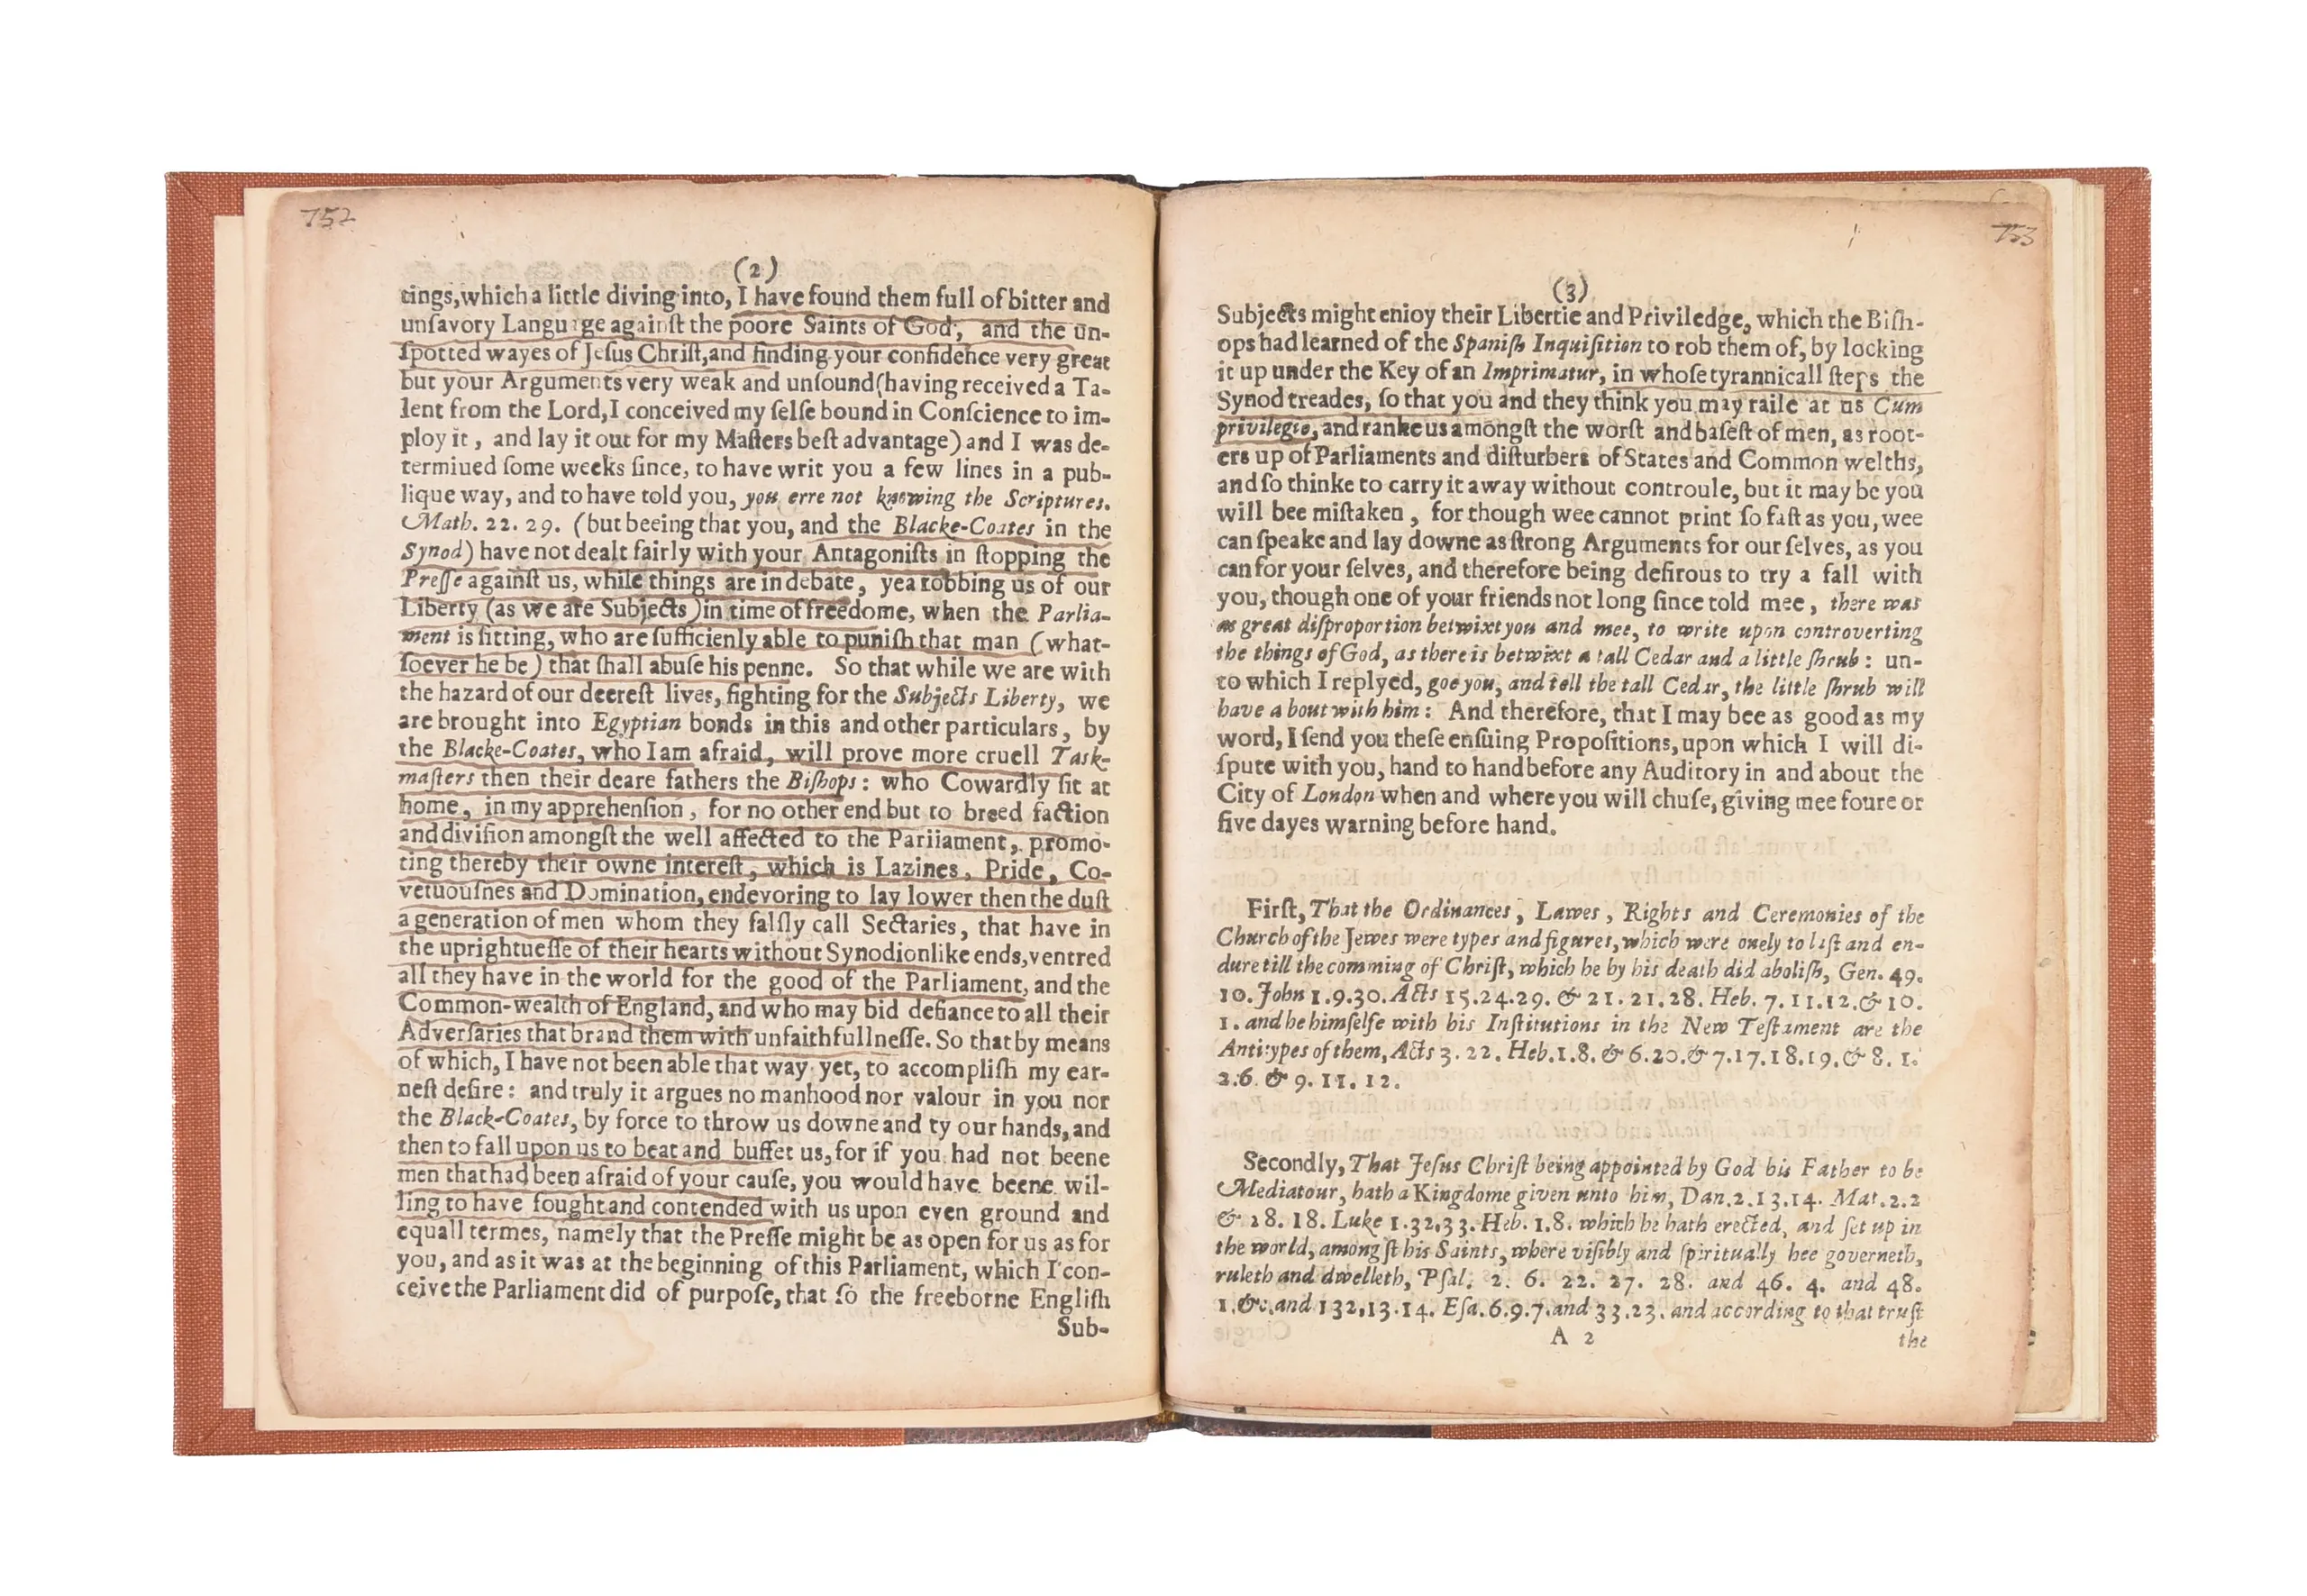 752
(2)
tings,which a little diving into, I have found them full of bitter and
unſavory Language againſt the poore Saints of God, and the un-
ſpotted wayes of Jeſus Chriſt,and finding your confidence very great
but your Arguments very weak and unſound(having received a Ta-
lent from the Lord,I conceived my ſelfe bound in Conſcience to im-
ploy it, and lay it out for my Maſters beſt advantage) and I was de-
termiued ſome weeks ſince, to have writ you a few lines in a pub-
lique way, and to have told you, you erre not knowing the Scriptures.
Math. 22. 29. (but beeing that you, and the Blacke-Coates in the
Synod) have not dealt fairly with your Antagoniſts in ſtopping the
Preſſe againſt us, while things are in debate, yea robbing us of our
Liberty (as we are Subjects) in time of freedome, when the Parlia-
ment is ſitting, who are ſufficienly able to puniſh that man (what-
ſoever he be) that ſhall abuſe his penne. So that while we are with
the hazard of our deereſt lives, fighting for the Subjects Liberty, we
are brought into Egyptian bonds in this and other particulars, by
the Blacke-Coates, who I am afraid, will prove more cruell Task-
maſters then their deare fathers the Biſhops: who Cowardly ſit at
home, in my apprehenſion, for no other end but to breed faction
and diviſion amongſt the well affected to the Pariiament, promo-
ting thereby their owne intereſt, which is Lazines, Pride, Co-
vetuouſnes and Domination, endevoring to lay lower then the duſt
a generation of men whom they falſly call Sectaries, that have in
the uprightueſſe of their hearts without Synodionlike ends, ventred
all they have in the world for the good of the Parliament, and the
Common-wealth of England, and who may bid defiance to all their
Adverſaries that brand them with unfaithfullneſſe. So that by means
of which, I have not been able that way yet, to accompliſh my ear-
neſt deſire: and truly it argues no manhood nor valour in you nor
the Black-Coates, by force to throw us downe and ty our hands, and
then to fall upon us to beat and buffet us, for if you had not beene
men that had been afraid of your cauſe, you would have beene wil-
ling to have fought and contended with us upon even ground and
equall termes, namely that the Preſſe might be as open for us as for
you, and as it was at the beginning of this Parliament, which I con-
ceive the Parliament did of purpoſe, that ſo the freeborne Engliſh
Sub-
753
(3)
Subjects might enioy their Libertie and Priviledge, which the Biſh-
ops had learned of the Spaniſh Inquiſition to rob them of, by locking
it up under the Key of an Imprimatur, in whoſe tyrannicall ſteps the
Synod treades, ſo that you and they think you may raile at us Cum
privilegio, and ranke us amongſt the worſt and baſeſt of men, as root-
ers up of Parliaments and diſturbers of States and Common welths,
and ſo thinke to carry it away without controule, but it may be you
will bee miſtaken, for though wee cannot print ſo faſt as you, wee
can ſpeake and lay downe as ſtrong Arguments for our ſelves, as you
can for your ſelves, and therefore being deſirous to try a fall with
you, though one of your friends not long ſince told mee, there was
as great diſproportion betwixt you and mee, to write upon controverting
the things of God, as there is betwixt a tall Cedar and a little ſhrub: un-
to which I replyed, goe you, and tell the tall Cedar, the little ſhrub will
have a bout with him: And therefore, that I may bee as good as my
word, I ſend you theſe enſuing Propoſitions, upon which I will di-
ſpute with you, hand to hand before any Auditory in and about the
City of London when and where you will chuſe, giving mee foure or
five dayes warning before hand.
Firſt, That the Ordinances, Lawes, Rights and Ceremonies of the
Church of the Jewes were types and figures, which were onely to laſt and en-
dure till the comming of Chriſt, which he by his death did aboliſh, Gen. 49.
10. John 1.9.30. Acts 15.24.29. & 21. 21.28. Heb. 7.11.12. & 10.
1. and he himſelfe with his Inſtitutions in the New Teſtament are the
Antitypes of them, Acts 3. 22. Heb.1.8. & 6.20. & 7.17.18.19. & 8. 1.
2.6. & 9. 11. 12.
Secondly, That Jeſus Chriſt being appointed by God his Father to be
Mediatour, hath a Kingdome given unto him, Dan.2.13.14. Mat.2.2
& 28. 18. Luke 1.32,33. Heb. 1.8. which he hath erected, and ſet up in
the world, amongſt his Saints, where viſibly and ſpiritually hee governeth,
ruleth and dwelleth, Pſal. 2. 6. 22. 27. 28. and 46. 4. and 48.
1. &c. and 132,13.14. Eſa. 6.9.7. and 33.23. and according to that truſt
A 2
the